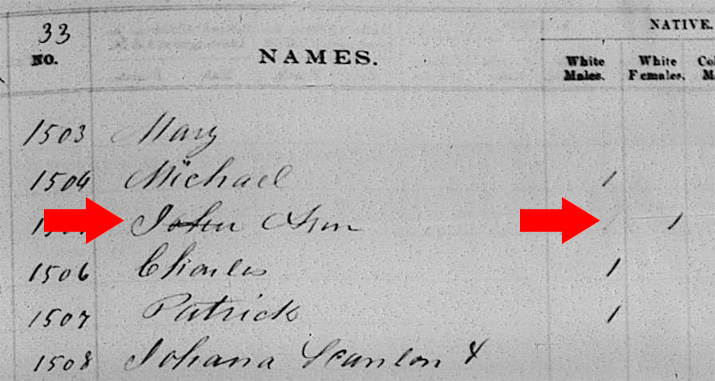 33
NO. NAMES. NATIVE.
White Males. White Females.
1503 Mary
1504 Michael 1
John Ann 1
1506 Charles 1
1507 Patrick 1
1508 Johana Scanlon